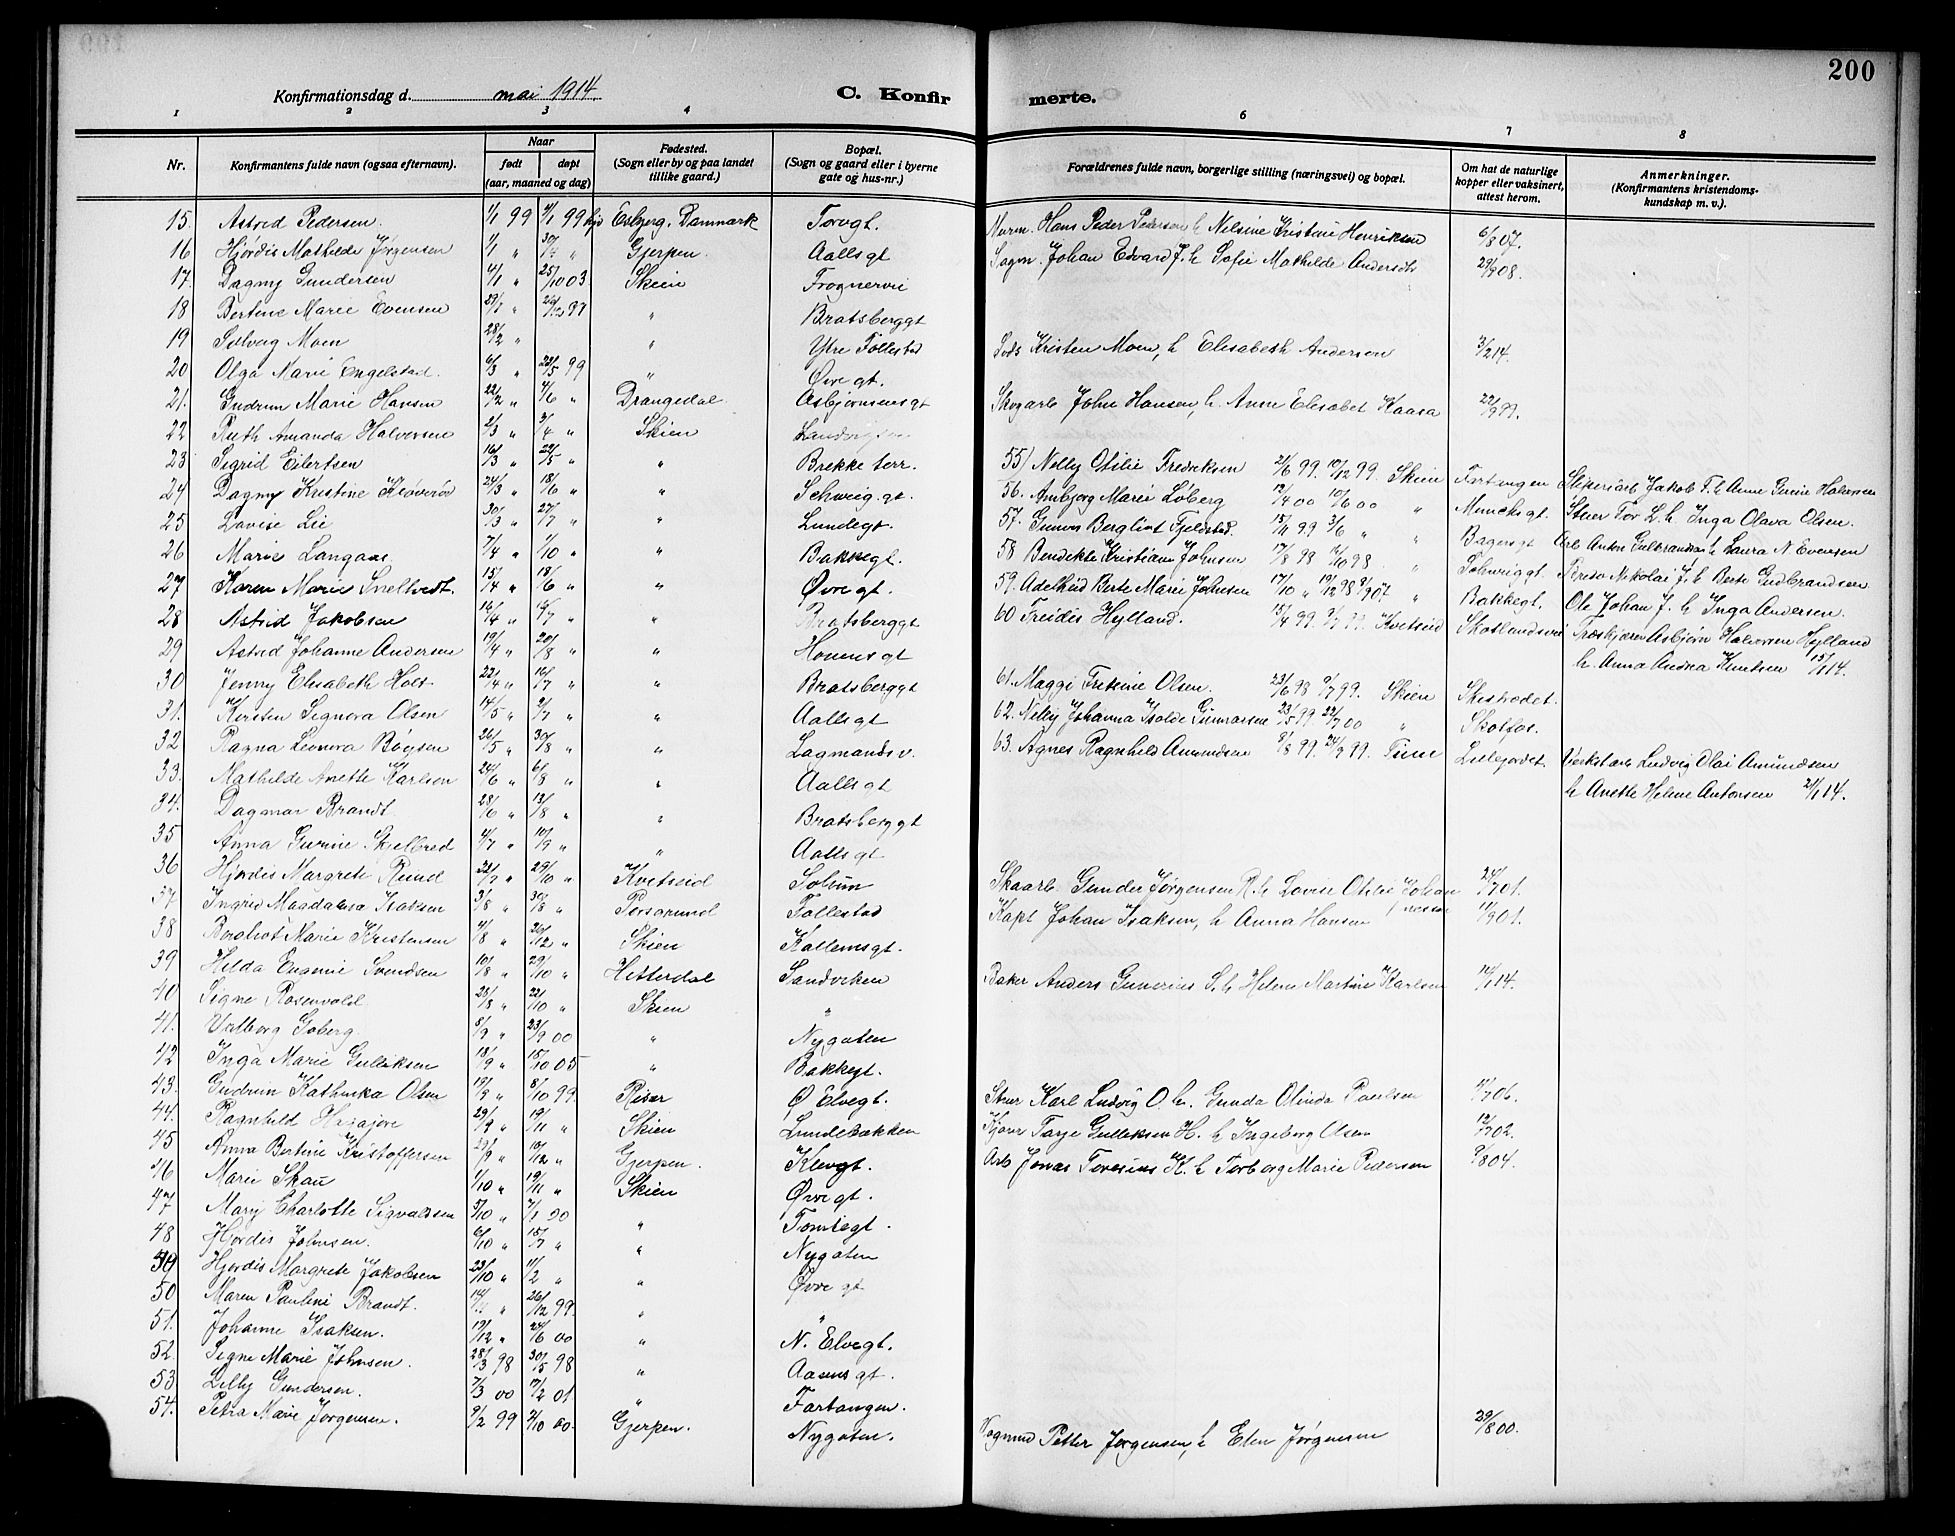 200
Konfirmationsdag d. mai 1914. C. Konfirmerte.
1 2 3 4 6 7 8
Nr. Konfirmantens fulde navn (ogsaa efternavn). Naar født døpt (aar, maaned og dag) Fødested. (Sogn eller by og paa landet tillike gaard.) Bopæl. (Sogn og gaard eller i byerne gate og hus-nr.) Forældrenes fulde navn, borgerlige stilling (næringsvei) og bopæl. Om hat de naturlige kopper eller vaksinert, attest herom. Anmerkninger. (Konfirmantens kristendoms-kundskap m. v.).
15. Astrid Pedersen. 1/1 99 Esbjerg, Danmark Torvgt. Murm. Hans Peder Pedersen, h Nelsine Kristine Henriksen 6/8 07.
16 Hjørdis Mathilde Jørgensen 1/1 " Gjerpen. Aallsgt Sagm. Johan Edvard J. h Sofie Mathilde Andersdtr 29/9 08.
17. Dagny Gundersen 4/1 " 25/10 03. Skien Frognervei
18 Bertine Marie Evensen " " Bratsberggt
19 Solveig Moen 28/2 " " Ytre Follestad Kristen Moen, h Elisabeth Andersen 3/2 14.
20 Olga Marie Engelstad. 6/3 " 22/5 99 " Øvre gt.
21. Gudrun Marie Hansen 22/2 " 4/6 " Drangedal Asbjørnsensgt Skogarb John Hansen, h. Anne Elisabet Kaasa 22/9 99.
22 Ruth Amanda Halvorsen 2/3 " 3/4 " Skien
23 Sigrid Eilertsen 16/3 " 22/5 " " Brekke terr.
24 Dagny Kristine Kløverød 24/3 " 18/6 " " Schweig. gt.
25 Lovise Lie 30/3 " 27/7 " " Lundegt.
26 Marie Langaas 7/4 " 1/10 " " Bakkegt.
27 Karen Marie Snelltvedt. 15/4 " 18/6 " " Øvre gt.
28 Astrid Jakobsen 16/4 " 16/7 " " Bratsberggt
29 Astrid Johanne Andersen 19/4 " 20/8 " " Houensgt
30 Jenny Elisabeth Holt 22/4 " 16/7 " " Bratsberggt
31. Kirsten Signora Olsen 14/5 " 2/7 " " Aallsgt
32 Ragna Leonora Bøysen 26/5 " 30/8 " " Lagmandsv.
33. Mathilde Anette Karlson 24/6 " 6/8 " " Aallsgt
34. Dagmar Brandt 28/6 " 13/8 " " Bratsberggt
35 Anna Gurine Skelbred 4/7 " 10/9 " " Aallsgt
36 Hjørdis Margrete Rund 22/7 " 29/10 " Kvitseid Solum Skaarb Gunder Jørgensen R. h Lovise Otilie Johannessen 24/7 01.
37 Ingrid Magdalena Isaksen 3/8 " 30/8 " Porsgrund Follestad Kapt Johan Isaksen, h Anna Hansen 11/9 01.
38 Borghot Marie Kristensen 4/8 " 26/12 " Skien Kallemsgt.
39 Hilda Eugenie Svendsen 10/8 " 29/10 " Hitterdal Sandviken Baker Anders Gunerius S. h Helene Martine Karlsen 14.
40 Signe Rosenvold 28/8 " 22/10 " Skien "
41. Valborg Goberg 8/9 " 23/9 00 " Nygaten
42 Inga Marie Gulliksen 18/9 " 15/10 05 " Bakkegt.
43. Gudrun Kathinka Olsen 19/9 " 8/10 99. Risør Ø Elvegt. Stuer Karl Ludvig O. h. Gunda Olinda Paulsen 11/7 06.
44. Ragnhild 29/9 " 19/11 " Skien Lundebakken Kjører Tarje Gulleksen H. h Ingeborg Olsen 12/7 02.
45 Anna Bertine Kristoffersen 29/9 " 10/12 " Gjerpen. Klevgt. Arb Jonas Toresius K. h Torborg Marie Pedersen 9/8 04.
46 Marie Skau 1/10 " 19/11 " Skien Øvre gt.
47 Mary Charlotte Sigvaldsen 5/10 " 7/1 00 " Tomtegt.
48 Hjørdis Johnsen. 6/10 " 15/7 " " Nygaten
49 Hjørdis Margrete Jakobsen 23/10 " 11/2 " " Øvre gt
50 Maren Pauline Brandt. " 26/12 99. " "
51. Johanne Isaksen. 19/12 " 24/6 00 " N. Elvegt.
52. Signe Marie Johnsen. 28/3 98 30/5 98 " Aasens gt.
53 Lilly Gundersen. 7/3 00 17/2 01. " Fartangen.
54. Petra Marie Jørgensen. 9/2 99 2/10 00. Gjerpen. Nygaten. Vognmd Petter Jørgensen, h Elen Jørgensen 29/8 00.
55) Nelly Otilie Fredriksen 21/6 99. 10/12 99. Skien Fartangen Sliperiarb Jakob F. h Anne Gurine Halvorsen
56. Anbjørg Marie Løberg 12/4 00 10/6 00 " Munchsgt. Stuer Tor L. h Inga Olava Olsen.
57. Gunvor Berglint Fjeldstad. 15/11 99 3/6 " " Bagersgt Arb Anton Gulbrandsen h Laura N Evensen
58 Bendikte Kristiane Johnsen 17/8 98 16/10 98 " Schweiggt. Nikolai J. h Berte Gudbrandsen
59. Adelheid Berte Marie Johnsen 17/10 " 19/12 98 9/9 07 " Bakkegt. Ole Johan J. h Inga Andersen.
60 Freidis Hylland. 15/4 99. 9/7 99. Kvitseid Skotlandsvei Træskjærer Asbjørn Halvorsen Hylland
h. Anna Andrea Knutsen 15/1 14.
61. Maggi Fritsine Olsen. 23/6 98 9/7 99. Skien Skistredet.
62. Nelly Johanna Isolde Gunnarsen 23/5 99. 22/7 00 " Skotfos.
63. Agnes Ragnhild Amundsen 8/8 99. 24/9 99. Lillejordet Verkstarb Ludvig Olai Amundsen
h Anette Helene Antonsen 21/1 14.